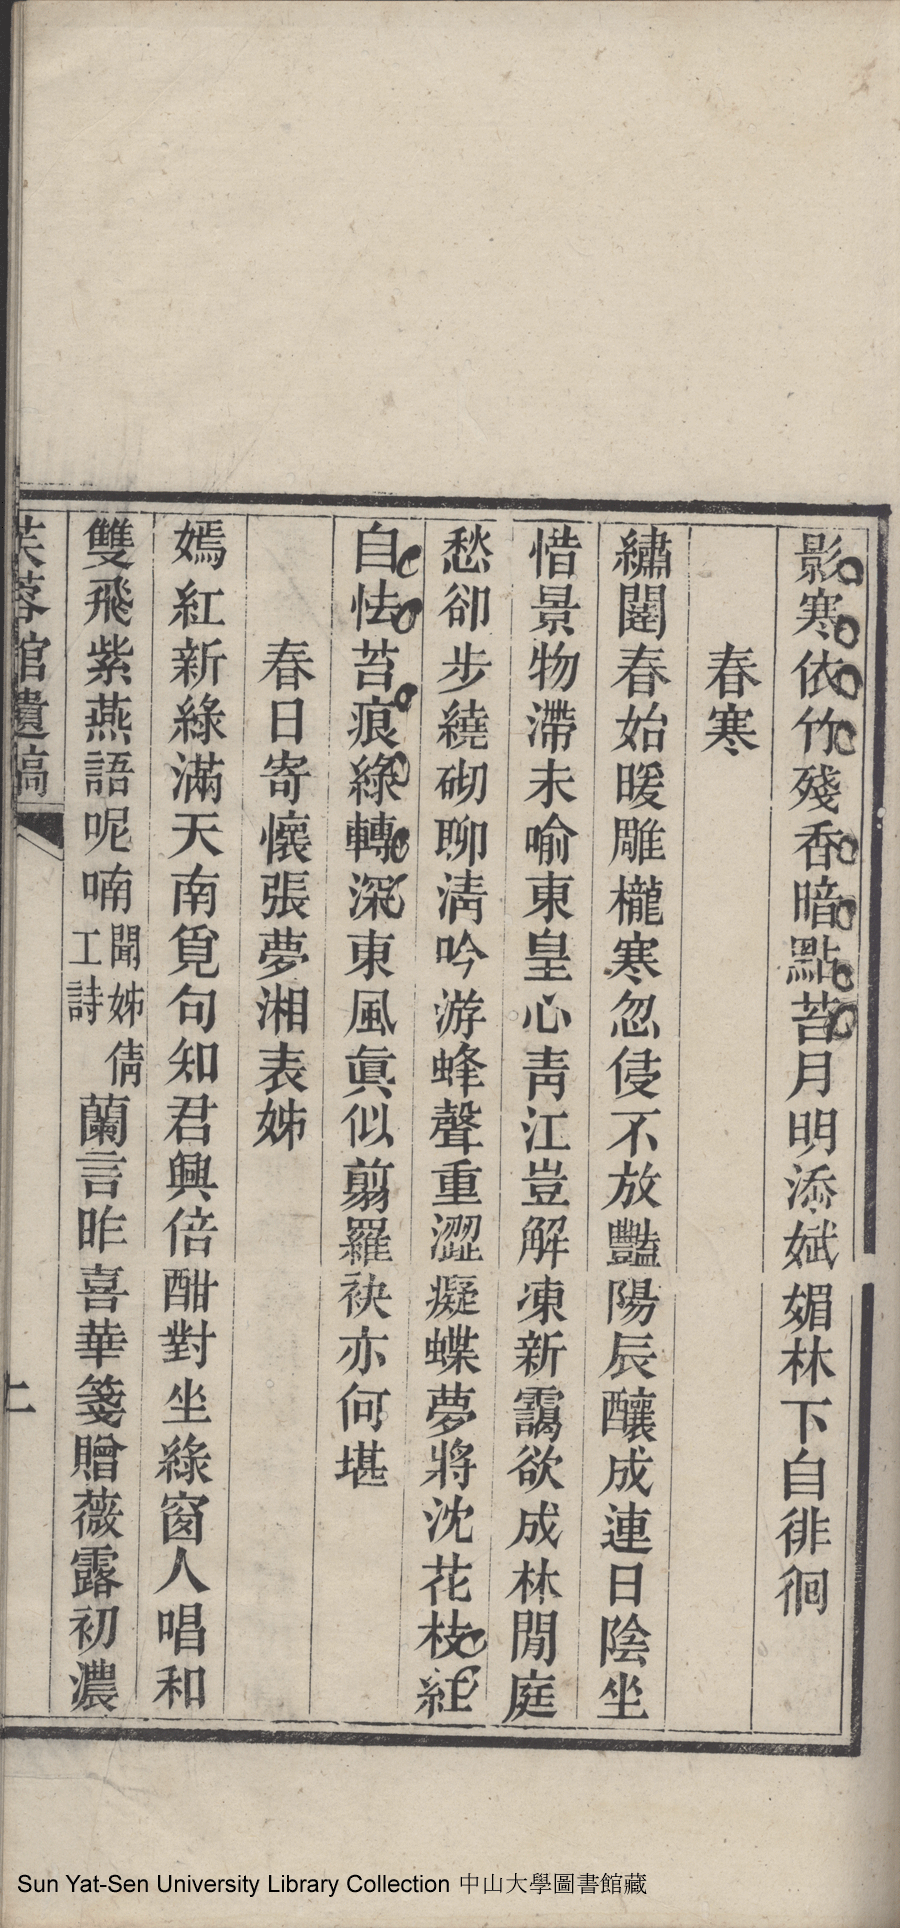 影寒依竹殘香暗點苔月明添斌媚林下自徘徊
春寒
繡闥春始暖雕櫳寒忽侵不放豔陽辰釀成連日陰坐
惜景物滯未喻東皇心靑江豈解凍新靄欲成林閒庭
愁卻步繞砌聊淸吟游蜂聲重澀癡蝶夢將沈花枝紅
自怯苔痕綠轉深東風眞似翦羅袂亦何堪
春日寄懷張夢湘表姊
嫣紅新綠滿天南覓句知君興倍酣對坐綠窗人唱和
雙飛紫燕語呢喃聞姊倩工詩蘭言昨喜華箋贈薇露初濃
芙蓉館遺稿
上
Sun Yat-Sen University Library Collection 中山大學圖書館藏